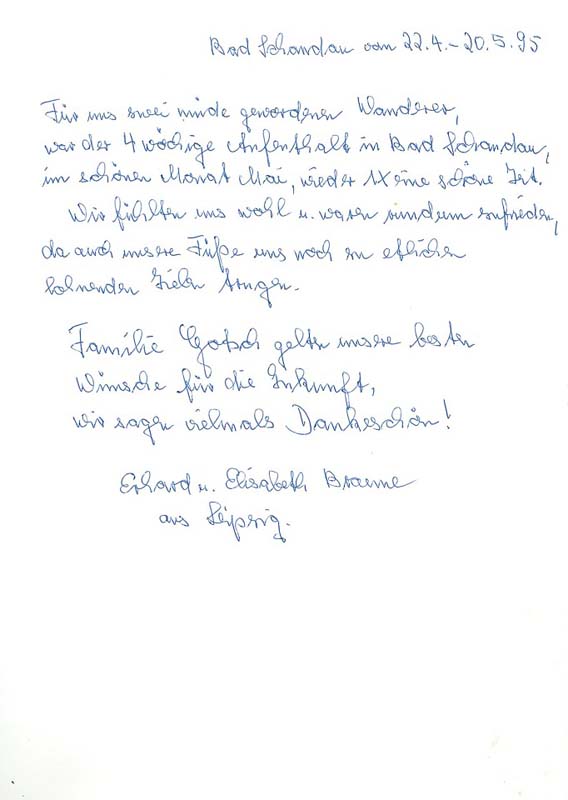 Bad Schandau vom 22.4.-20.5.95
Für uns zwei müde gewordenen Wanderer,
war der 4 wöchige Aufenthalt in Bad Schandau,
im schönen Monat Mai, wieder 1x eine schöne Zeit.
Wir fühlten uns wohl u. waren rundum zufrieden,
da auch unsere Füße uns noch zu etlichen
lohnenden Zielen trugen.
Familie Gotsch gelten unsere besten
Wünsche für die Zukunft,
wir sagen vielmals Dankeschön!
Erhard u. Elisabeth Braune
aus Leipzig.